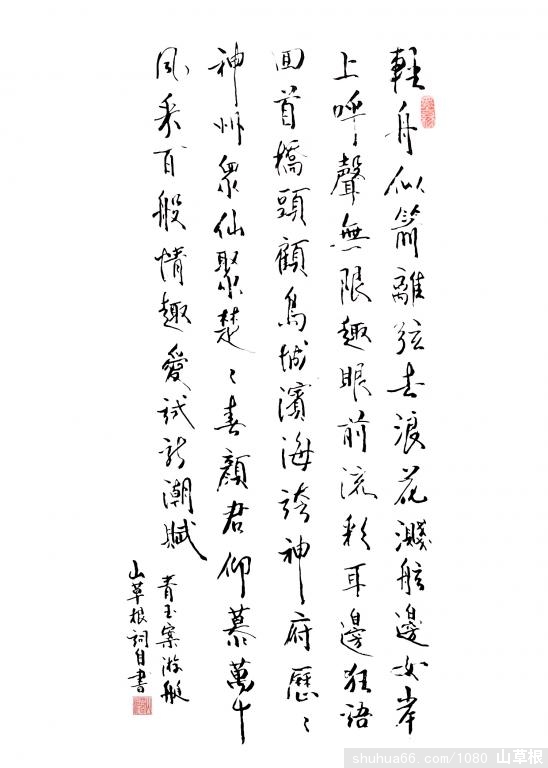 輕舟似箭離弦去浪花濺舷邊女岸
上呼聲無限趣眼前流彩耳邊狂語
回首橋頭顧鳥城濱海誇神府歷〻
神州衆仙聚楚〻喜顏君仰慕萬千
風采百般情趣愛試新潮賦
青玉案游艇
山草根詞自書
shuhua66.com/1080 山草根